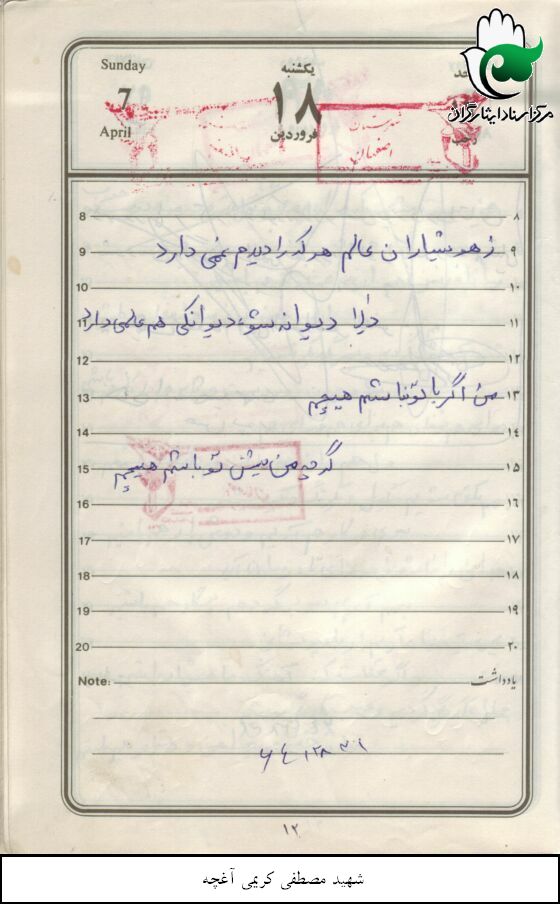 Sunday یکشنبه احد
7 ۱۸
April فروردین رجب
مرکز اسناد ایثارگران
شهرستان
اصفهان
8 ۸
9 زهوشیاران عالم هر که را دیدم غمی دارد ۹
10 ۱۰
11 دلا دیوانه شو دیوانگی هم عالمی دارد ۱۱
12 ۱۲
13 من اگر با تو نباشم هیچم ۱۳
14 ۱۴
15 گرچه من پیش تو باشم هیچم ۱۵
16 ۱۶
17 ۱۷
18 ۱۸
19 ۱۹
20 ۲۰
Note: یادداشت
۱۲
شهید مصطفی کریمی آغچه